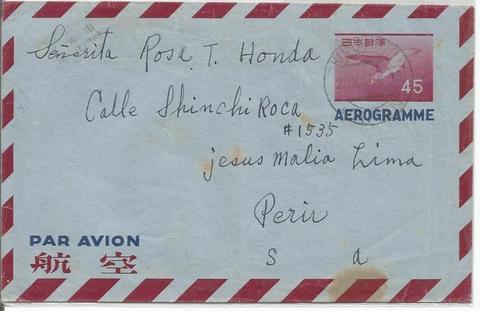 日本郵便
45
AEROGRAMME
Señorita Rosa T. Honda
Calle Shinchi Roca
#1535
jesus Malia Lima
Perú
S a
PAR AVION
航空